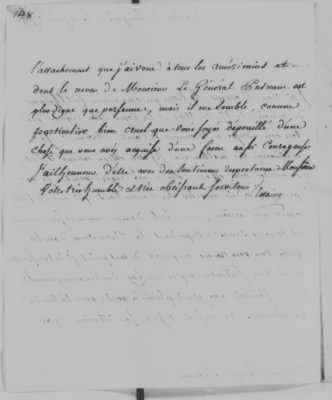 l'attachement que j'ai voué à tous les américains et
dont le neveu de Monsieur Le Général Putnam est
plus digne que personne, mais il me semble, comme
particulier bien cruel que vous soyés dépouillé d'une
chose que vous avés acquise d'une façon aussi Courageuse
J'ai l'honneur d'être avec des Sentimens respectueux Monsieur
Votre très humble et très obéissant serviteur